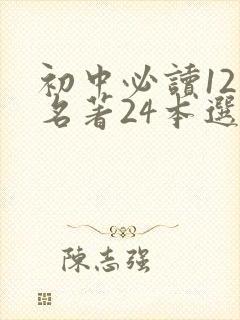 初中必讀12
名著24本選
陳志强